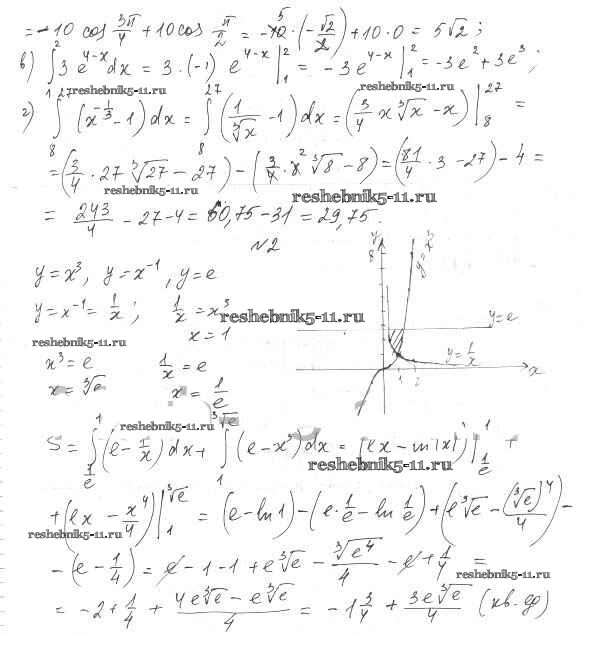 = -10 cos 3π/4 + 10 cos π/2 = -10⁵·(-√2/2) + 10·0 = 5√2 ;
в) ∫₁² 3 e^(4-x) dx = 3·(-1) e^(4-x) |₁² = -3e^(4-x) |₁² = -3e² + 3e³ ;
reshebnik5-11.ru reshebnik5-11.ru
г) ∫₈²⁷ (x^(-1/3) - 1) dx = ∫₈²⁷ (1/∛x - 1) dx = (3/4 x ∛x - x) |₈²⁷ =
= (3/4 · 27 ∛27 - 27) - (3/4 · 8² ∛8 - 8) = (81/4 · 3 - 27) - 4 =
reshebnik5-11.ru reshebnik5-11.ru
= 243/4 - 27 - 4 = 60,75 - 31 = 29,75.
№2
y = x³, y = x⁻¹, y = e
y = x⁻¹ = 1/x ; 1/x = x³
reshebnik5-11.ru
x = 1
reshebnik5-11.ru
x³ = e 1/x = e
x = ∛e x = 1/e
y
8
y = x³
y = e
y = 1/x
1 2 x
reshebnik5-11.ru
S = ∫_(1/e)^1 (e - 1/x) dx + ∫₁^(∛e) (e - x³) dx = (ex - ln|x|) |_(1/e)^1 +
reshebnik5-11.ru
+ (ex - x⁴/4) |₁^(∛e) = (e - ln 1) - (e · 1/e - ln 1/e) + (e ∛e - (∛e)⁴/4) -
reshebnik5-11.ru
- (e - 1/4) = e - 1 - 1 + e∛e - ∛e⁴/4 - e + 1/4 =
reshebnik5-11.ru
= -2 + 1/4 + (4e∛e - e∛e)/4 = -1 3/4 + 3e∛e/4 (кв. ед)